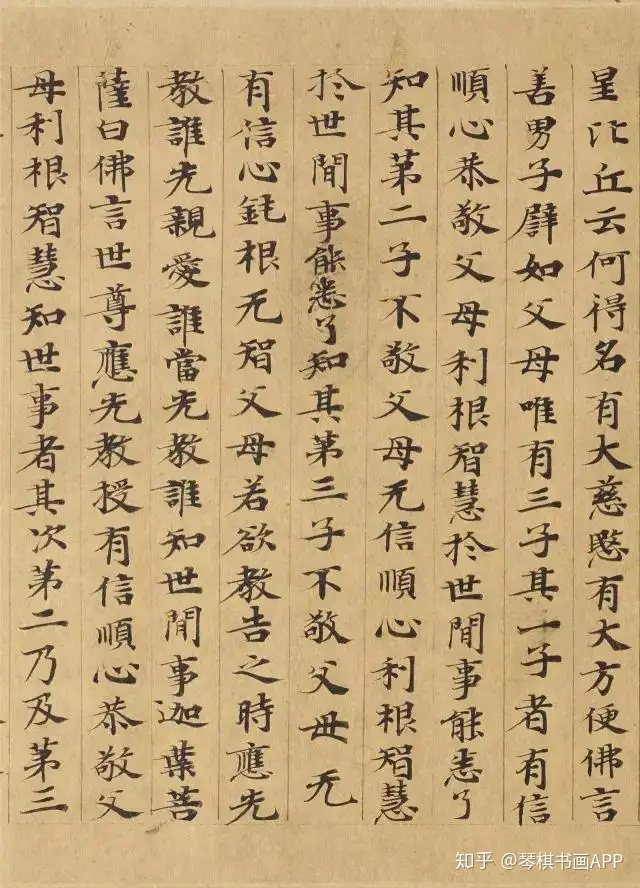 星比丘云何得名有大慈愍有大方便佛言
善男子譬如父母唯有三子其一子者有信
順心恭敬父母利根智慧於世間事能悉了
知其第二子不敬父母无信順心利根智慧
於世間事能悉了知其第三子不敬父母无
有信心鈍根无智父母若欲教告之時應先
教誰先親愛誰當先教誰知世間事迦葉菩
薩白佛言世尊應先教授有信順心恭敬父
母利根智慧知世事者其次第二乃及第三
知乎 @琴棋书画APP